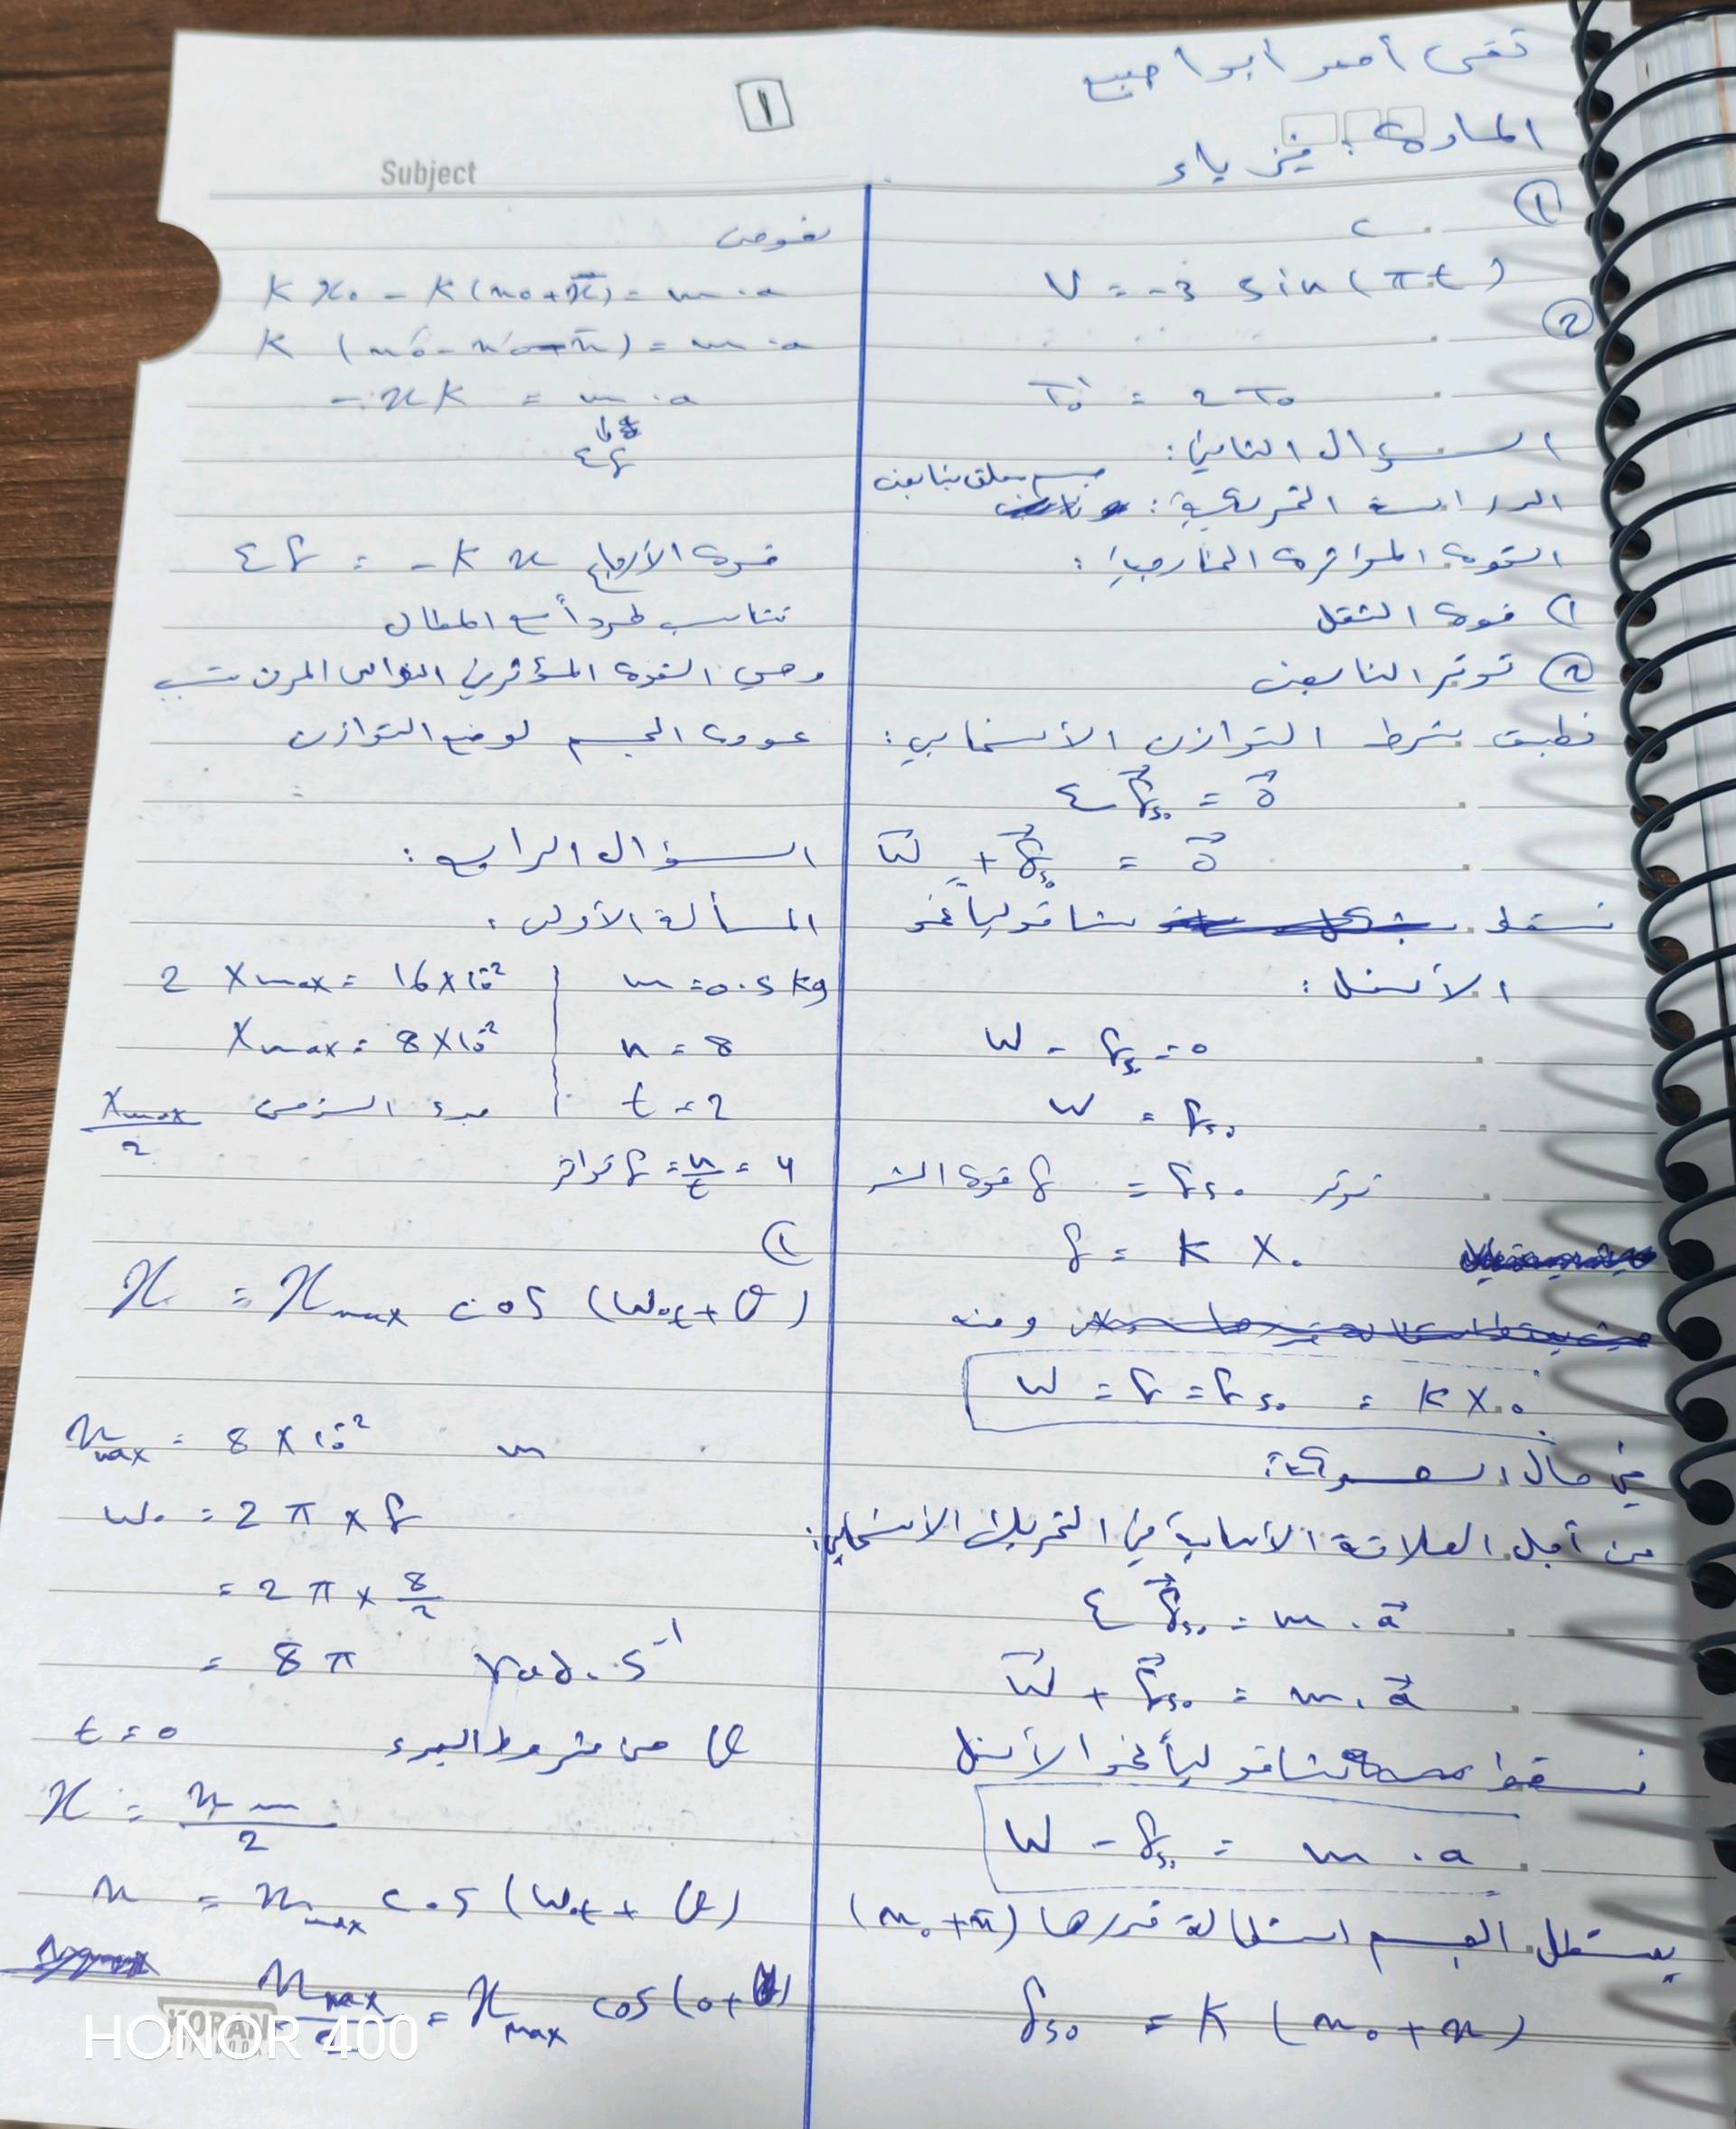 المادة: فيزياء
1
Subject
①
v = -3 sin(πt)
②
T₀' = 2T₀
السؤال الثاني:
الدراسة التحريكية: جسم معلق بنابض
القوة المؤثرة الخارجية:
1) قوة الثقل
② توتر النابض
نطبق شرط التوازن الانسحابي:
Σ F⃗s₀ = 0⃗
W⃗ + F⃗s₀ = 0⃗
نسقط شاقولياً نحو
الأسفل:
W - Fs₀ = 0
W = Fs₀
توتر Fs₀ = F قوة الشد
F = k X₀
ومنه
W = F = Fs₀ = k X₀
في حال الحركة:
من أجل العلاقة الأساسية في التحريك الانسحابي:
Σ F⃗s₀ = m . a⃗
W⃗ + F⃗s₀ = m . a⃗
نسقط شاقولياً نحو الأسفل
W - Fs₀ = m . a
يستطيل الجسم استطالة قدرها (x₀ + x̄)
Fs₀ = k (x₀ + x)
نعوض
k x₀ - k (x₀ + x̄) = m . a
k (x₀ - x₀ - x̄) = m . a
- x k = m . a
ΣF
قوة الأرجاع ΣF = - k x
تتناسب طرداً مع المطال
وهي القوة المؤثرة في النواس المرن تسبب
عودة الجسم لوضع التوازن
السؤال الرابع:
المسألة الأولى:
m = 0.5 kg | 2 Xmax = 16 × 10⁻²
n = 8 | Xmax = 8 × 10⁻²
t = 2 | بدء الزمن Xmax/2
4 = n/t = F تواتر
①
x = xmax cos (ω₀t + φ)
xmax = 8 × 10⁻² m
ω₀ = 2 π × F
= 2 π × 8/2
= 8 π rad . s⁻¹
φ من شروط البدء t = 0
x = xm/2
x = xmax cos (ω₀t + φ)
xmax/2 = xmax cos (0 + φ)
KORAN
HONOR 400